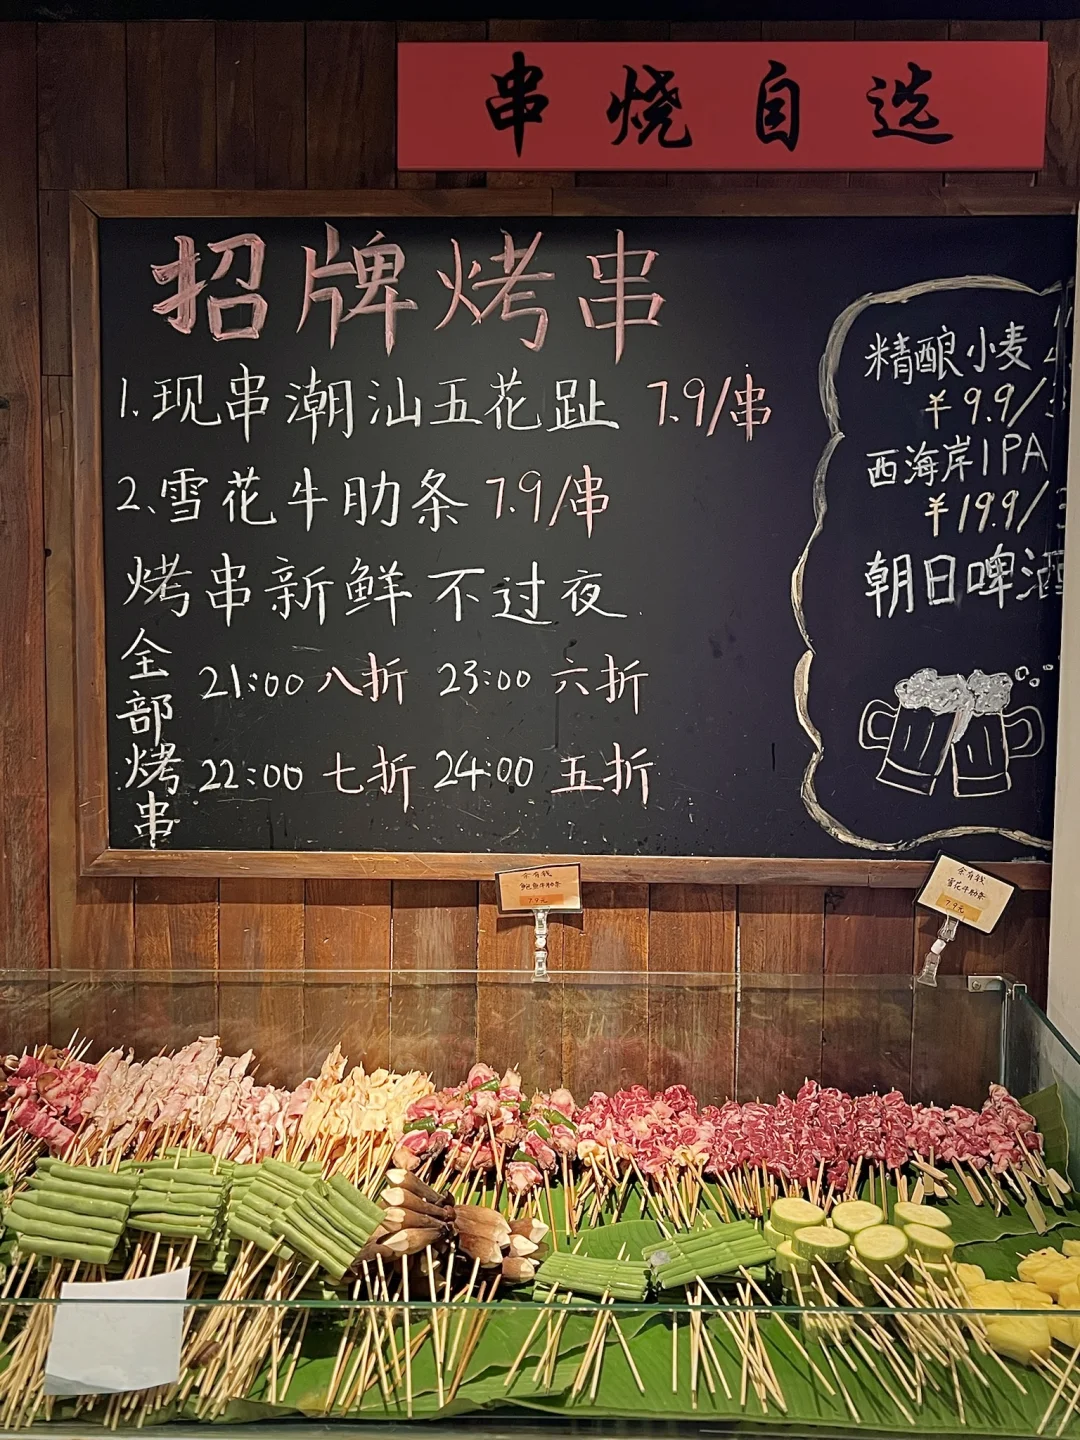 串烧自选
招牌烤串
1.现串潮汕五花趾 7.9/串
2.雪花牛肋条 7.9/串
烤串新鲜 不过夜
全部烤串
21:00 八折 23:00 六折
22:00 七折 24:00 五折
精酿小麦
¥9.9/
西海岸IPA
¥19.9/
朝日啤酒
余有钱
牛肋条
7.9元
余有钱
雪花牛肋条
7.9元